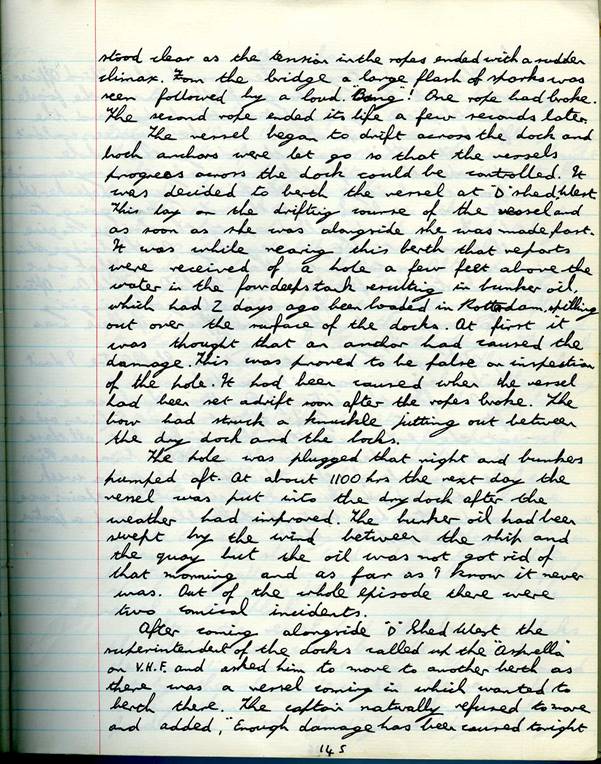 stood clear as the tension in the ropes ended with a sudden
climax. From the bridge a large flash of sparks was
seen followed by a loud "Bang"! One rope had broke.
The second rope ended its life a few seconds later.
The vessel began to drift across the dock and
both anchors were let go so that the vessels
progress across the dock could be controlled. It
was decided to berth the vessel at "D" shed West.
This lay on the drifting course of the vessel and
as soon as she was alongside she was made fast.
It was while nearing this berth that reports
were received of a hole a few feet above the
water in the fore deeptank resulting in bunker oil,
which had 2 days ago been loaded in Rotterdam, spilling
out over the surface of the docks. At first it
was thought that an anchor had caused the
damage. This was proved to be false on inspection
of the hole. It had been caused when the vessel
had been set adrift soon after the ropes broke. The
bow had struck a knuckle jutting out between
the dry dock and the locks.
The hole was plugged that night and bunkers
pumped aft. At about 1100 hrs the next day the
vessel was put into the dry dock after the
weather had improved. The bunker oil had been
swept by the wind between the ship and
the quay but the oil was not got rid of
that morning and as far as I know it never
was. Out of the whole episode there were
two comical incidents.
After coming alongside "D" Shed West the
superintendent of the docks called up the
on V.H.F. and asked him to move to another berth as
there was a vessel coming in which wanted to
berth there. The captain naturally refused to move
and added, "Enough damage has been caused tonight
145